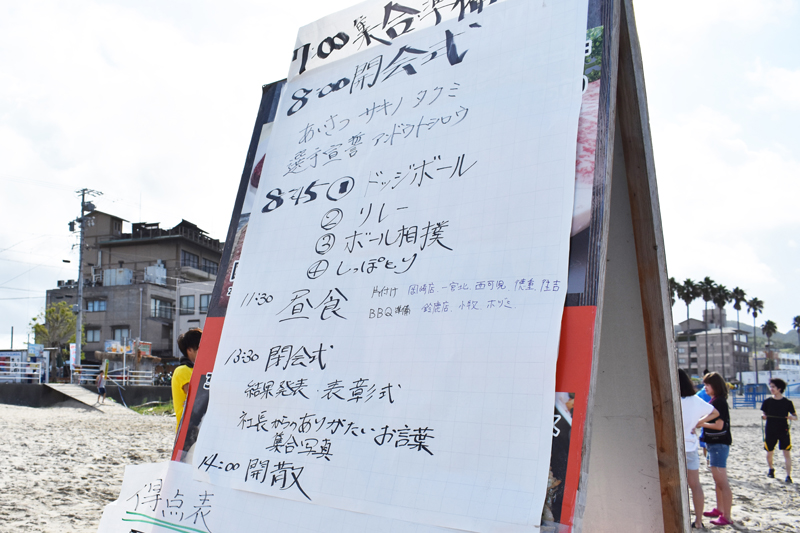 7:00 集合準備
8:00 開会式
あいさつ サキノ タクミ
選手宣誓 アンドウトシロウ
8:45 ① ドッジボール
② リレー
③ ボール相撲
④ しっぽとり
11:30 昼食
片付け 岡崎店、一宮北、西可児
BBQ準備 鈴鹿店、小牧
13:30 閉会式
結果発表・表彰式
社長からのありがたいお言葉
集合写真
14:00 開散
得点表